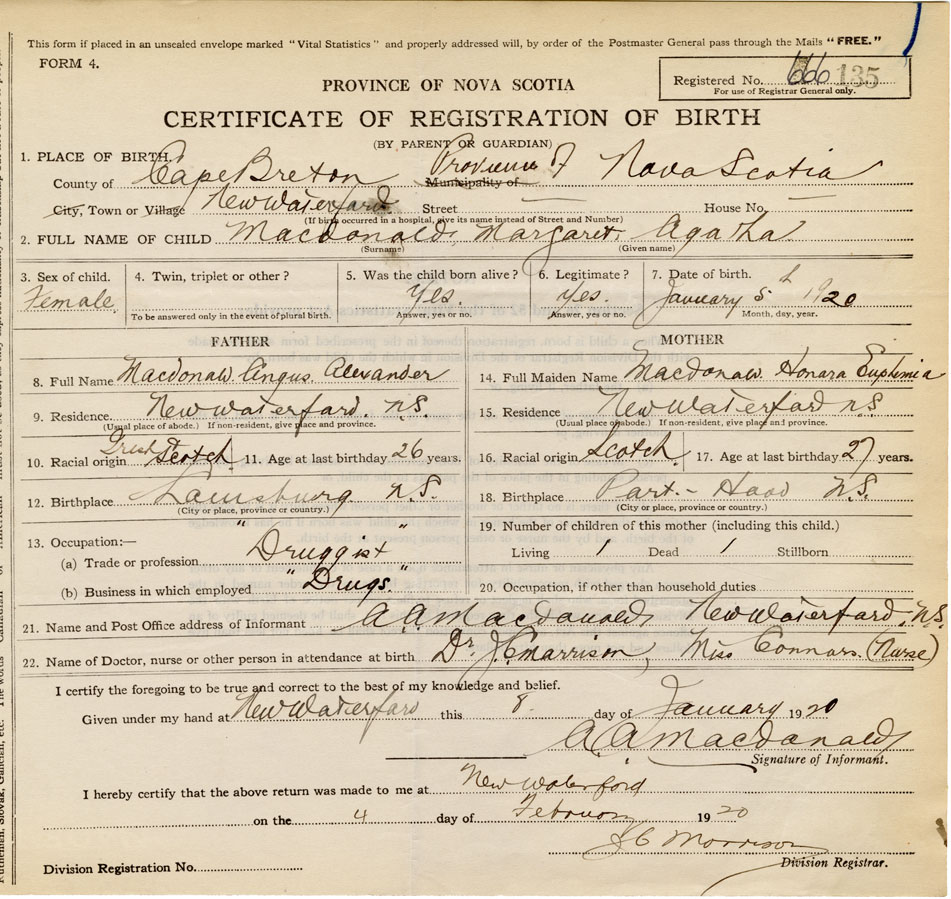 This form if placed in an unsealed envelope marked "Vital Statistics" and properly addressed will, by order of the Postmaster General pass through the Mails "FREE."
FORM 4.
Registered No. 666 135
For use of Registrar General only.
PROVINCE OF NOVA SCOTIA
CERTIFICATE OF REGISTRATION OF BIRTH
(BY PARENT OR GUARDIAN)
1. PLACE OF BIRTH.
County of Cape Breton Municipality of Province of Nova Scotia
City, Town or Village New Waterford Street — House No. —
(If birth occurred in a hospital, give its name instead of Street and Number)
2. FULL NAME OF CHILD Macdonald, Margaret Agatha
(Surname) (Given name)
3. Sex of child. 4. Twin, triplet or other? 5. Was the child born alive? 6. Legitimate? 7. Date of birth.
Female Yes. Yes. January 5th 1920
To be answered only in the event of plural birth. Answer, yes or no. Answer, yes or no. Month, day, year.
FATHER MOTHER
8. Full Name Macdonald Angus Alexander 14. Full Maiden Name Macdonald Honara Euphimia
9. Residence. New Waterford. N.S. 15. Residence New Waterford N.S
(Usual place of abode.) If non-resident, give place and province. (Usual place of abode.) If non-resident, give place and province.
10. Racial origin Scotch 11. Age at last birthday 26 years. 16. Racial origin Scotch 17. Age at last birthday 27 years.
12. Birthplace N.S. 18. Birthplace Port - Hood N.S.
(City or place, province or country.) (City or place, province or country.)
13. Occupation:— 19. Number of children of this mother (including this child.)
(a) Trade or profession "Druggist" Living 1 Dead 1 Stillborn
(b) Business in which employed "Drugs." 20. Occupation, if other than household duties
21. Name and Post Office address of Informant A.A. Macdonald, New Waterford, N.S.
22. Name of Doctor, nurse or other person in attendance at birth Dr. J.C. Morrison, Miss Connors. (Nurse)
I certify the foregoing to be true and correct to the best of my knowledge and belief.
Given under my hand at New Waterford this 8. day of January 1920
A A Macdonald
Signature of Informant.
I hereby certify that the above return was made to me at New Waterford
on the 4 day of February 1920
J C Morrison
Division Registration No. Division Registrar.